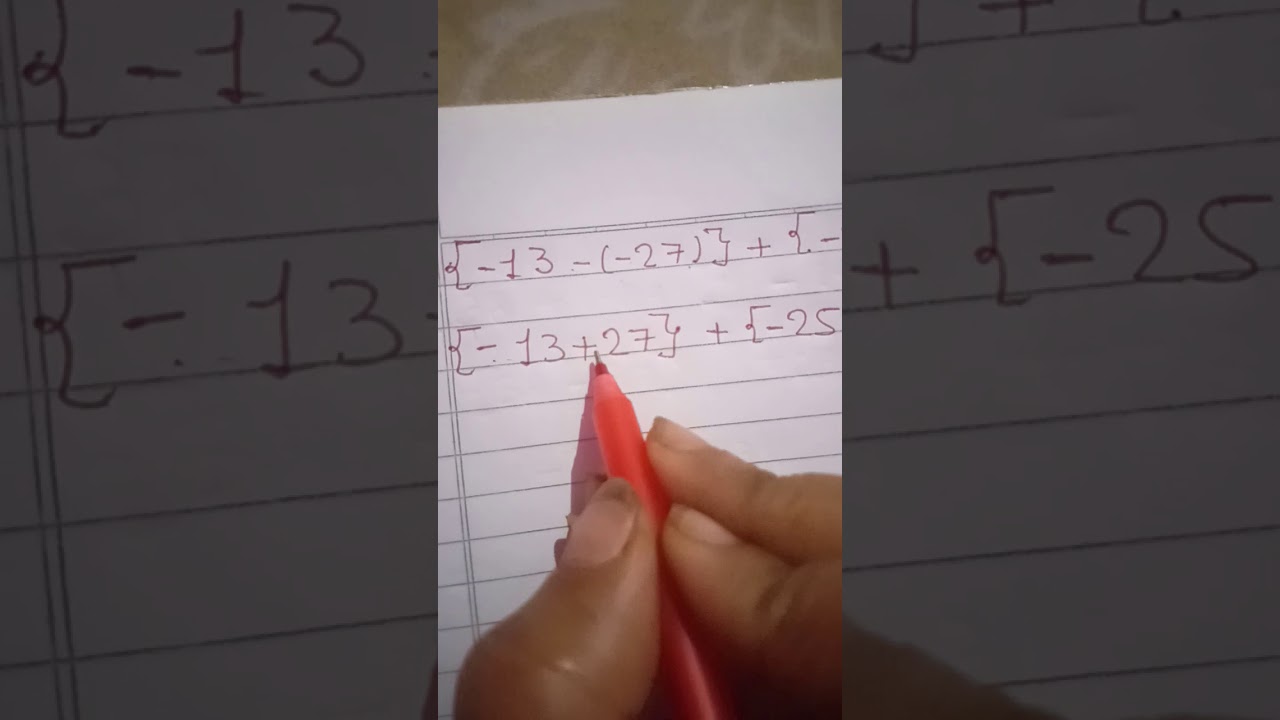 {-13-(-27)} + {-
{-13+27} + {-25